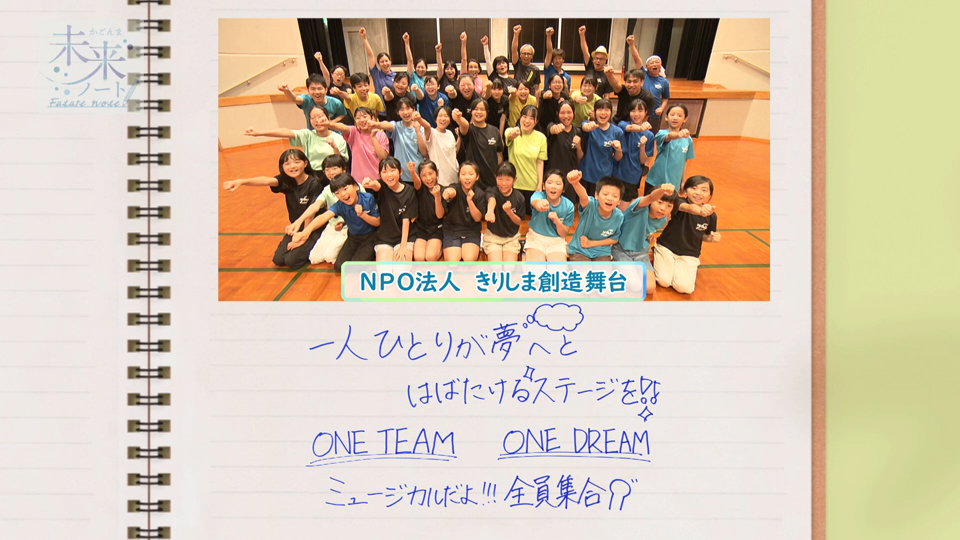 かごんま
未来
ノート
Future note!
NPO法人 きりしま創造舞台
一人ひとりが夢へと
はばたけるステージを!!
ONE TEAM ONE DREAM
ミュージカルだよ!!! 全員集合